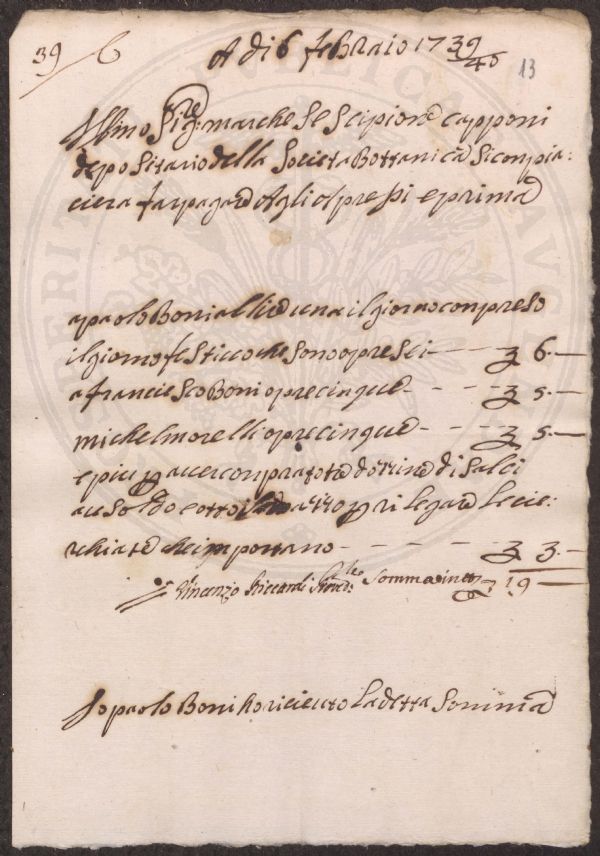 39 6 A di 6 febbraio 1739/40 13
Ill.mo Sig.re marchese Scipione capponi
depositario della Societa Bottanica Si conpia:
ciera far pagare Agli Opre Pi e prima
a paolo Boni a llire una il giorno conpreso
il giorno festivo che Sono opre Sei - - - £ 6 -
a franciesco Boni opre cinque - - - £ 5 -
michel morelli opre cinque - - - £ 5 -
e piu p aver conprato dottine di Salci
a Soldo e otto p ri legare le cie:
rchiate che importano - - - £ 3 -
Vincenzo Riccardi Somma in tto £ 19 -
Io paolo Boni ho riceuto La detta Somma